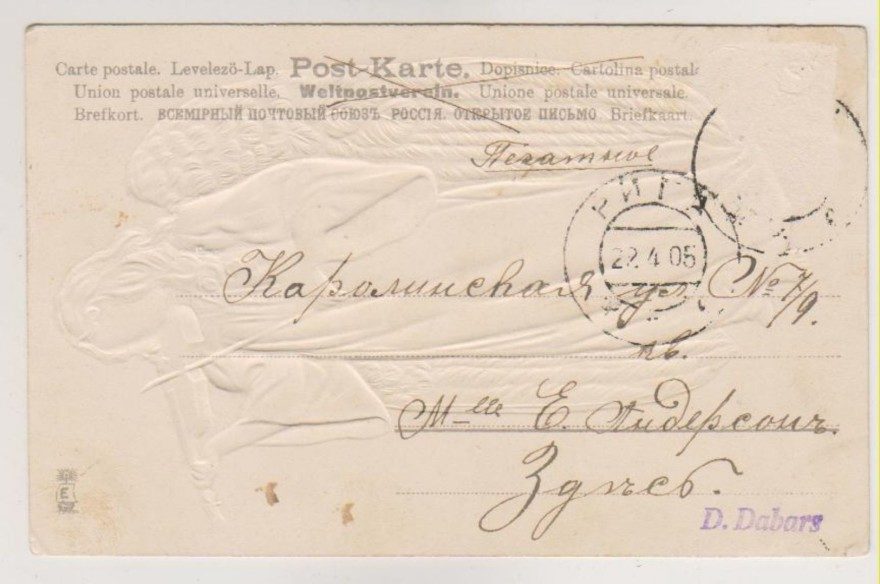 Carte postale. Levelezö-Lap. Post-Karte. Dopisnice. Cartolina postale
Union postale universelle. Weltpostverein. Unione postale universale.
Brefkort. ВСЕМІРНЫЙ ПОЧТОВЫЙ СОЮЗЪ РОССІЯ. ОТКРЫТОЕ ПИСЬМО Briefkaart.
Печатное
РИГА
22.4 05
Каролинская ул № 7/9.
кв.
М-lle Е. Андерсонъ.
Здѣсь.
D. Dabars
E